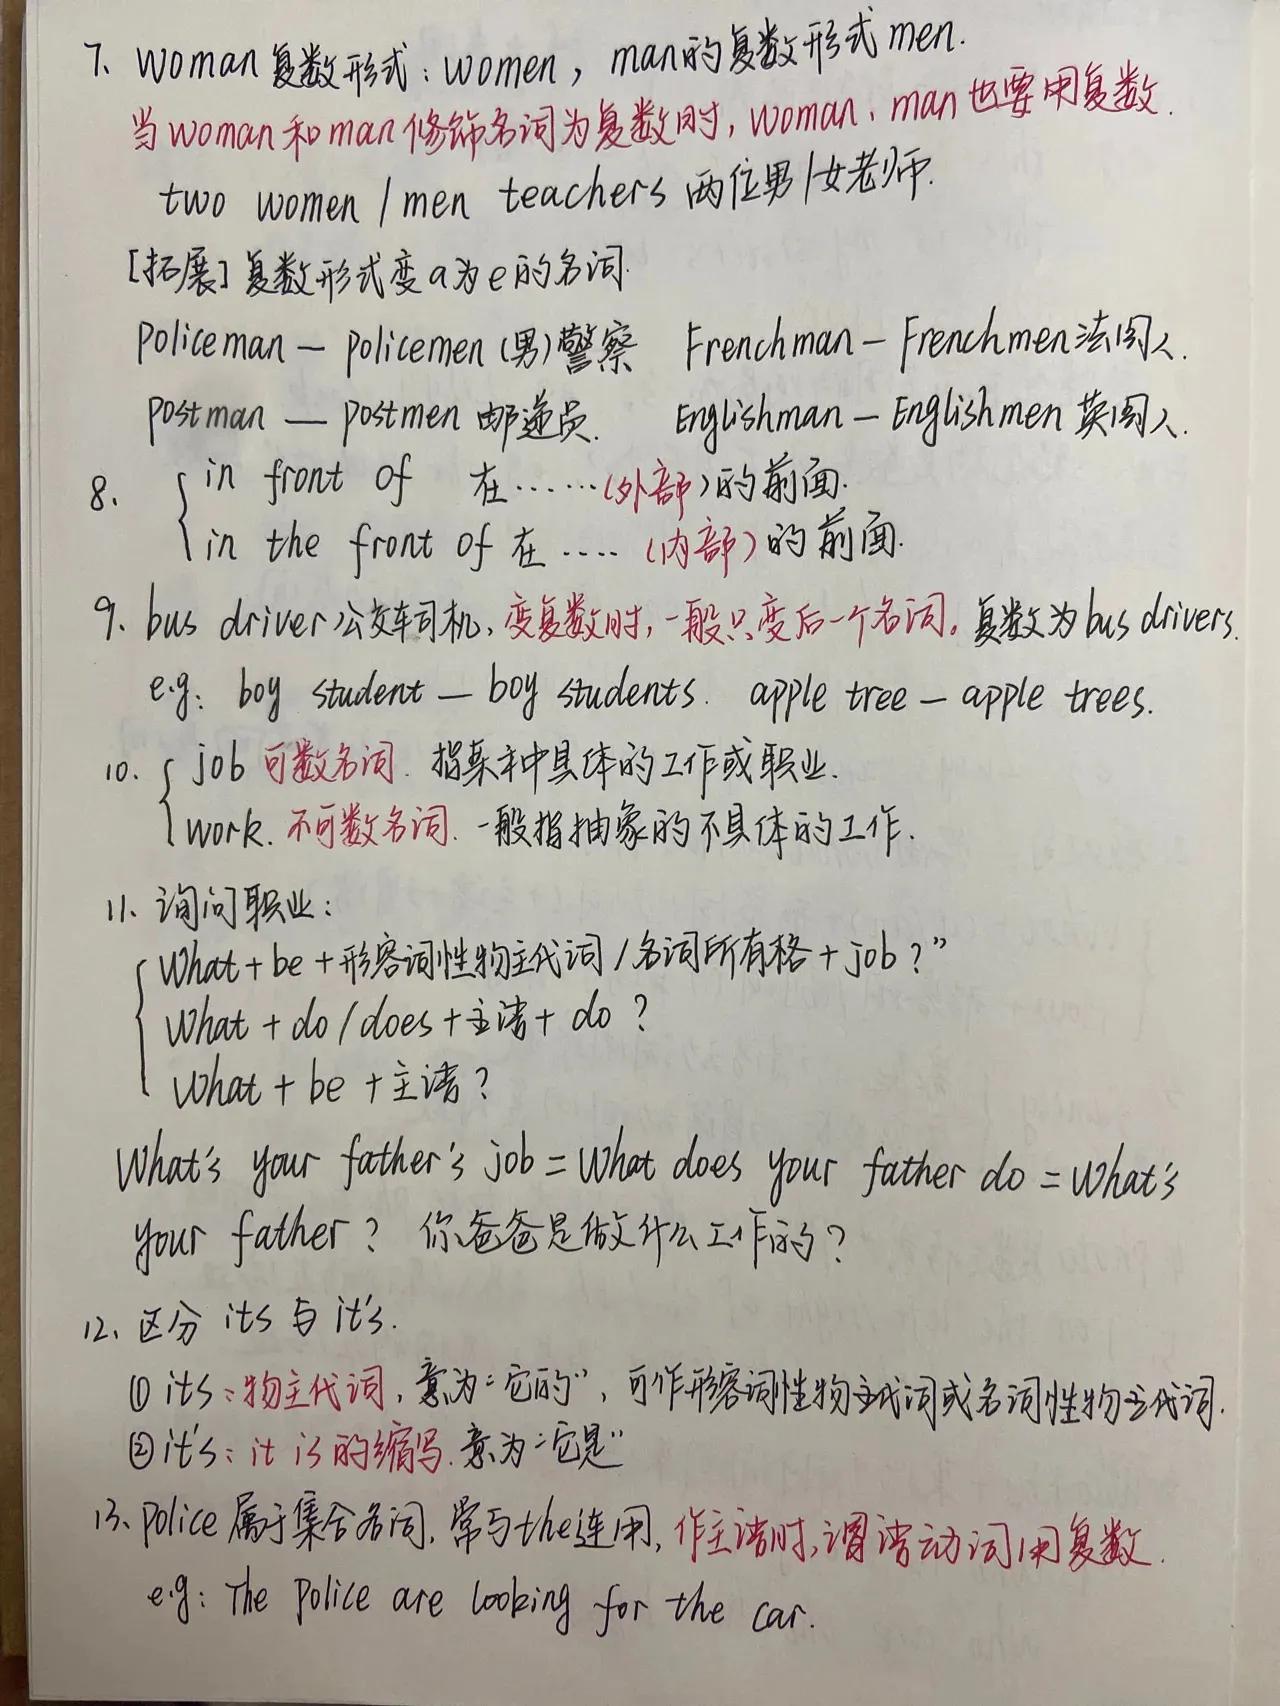 7、woman复数形式：women，man的复数形式men.
当woman和man修饰名词为复数时，woman、man也要用复数.
two women / men teachers 两位男/女老师.
[拓展] 复数形式变a为e的名词.
policeman — policemen (男)警察 Frenchman — Frenchmen 法国人.
postman — postmen 邮递员. Englishman — Englishmen 英国人.
8. in front of 在……(外部)的前面.
in the front of 在…..(内部)的前面.
9. bus driver公交车司机，变复数时，一般只变后一个名词。复数为bus drivers.
e.g: boy student — boy students. apple tree — apple trees.
10. job 可数名词. 指某种具体的工作或职业.
work. 不可数名词. 一般指抽象的不具体的工作.
11. 询问职业：
What+be+形容词性物主代词/名词所有格+job？”
What+do/does+主语+do？
What+be+主语？
What's your father's job = What does your father do = What's
your father？ 你爸爸是做什么工作的？
12、区分 its 与 it's.
① its：物主代词，意为“它的”，可作形容词性物主代词或名词性物主代词.
② it's：it is的缩写.意为“它是”
13、police 属于集合名词，常与the连用，作主语时，谓语动词用复数.
e.g: The police are looking for the car.